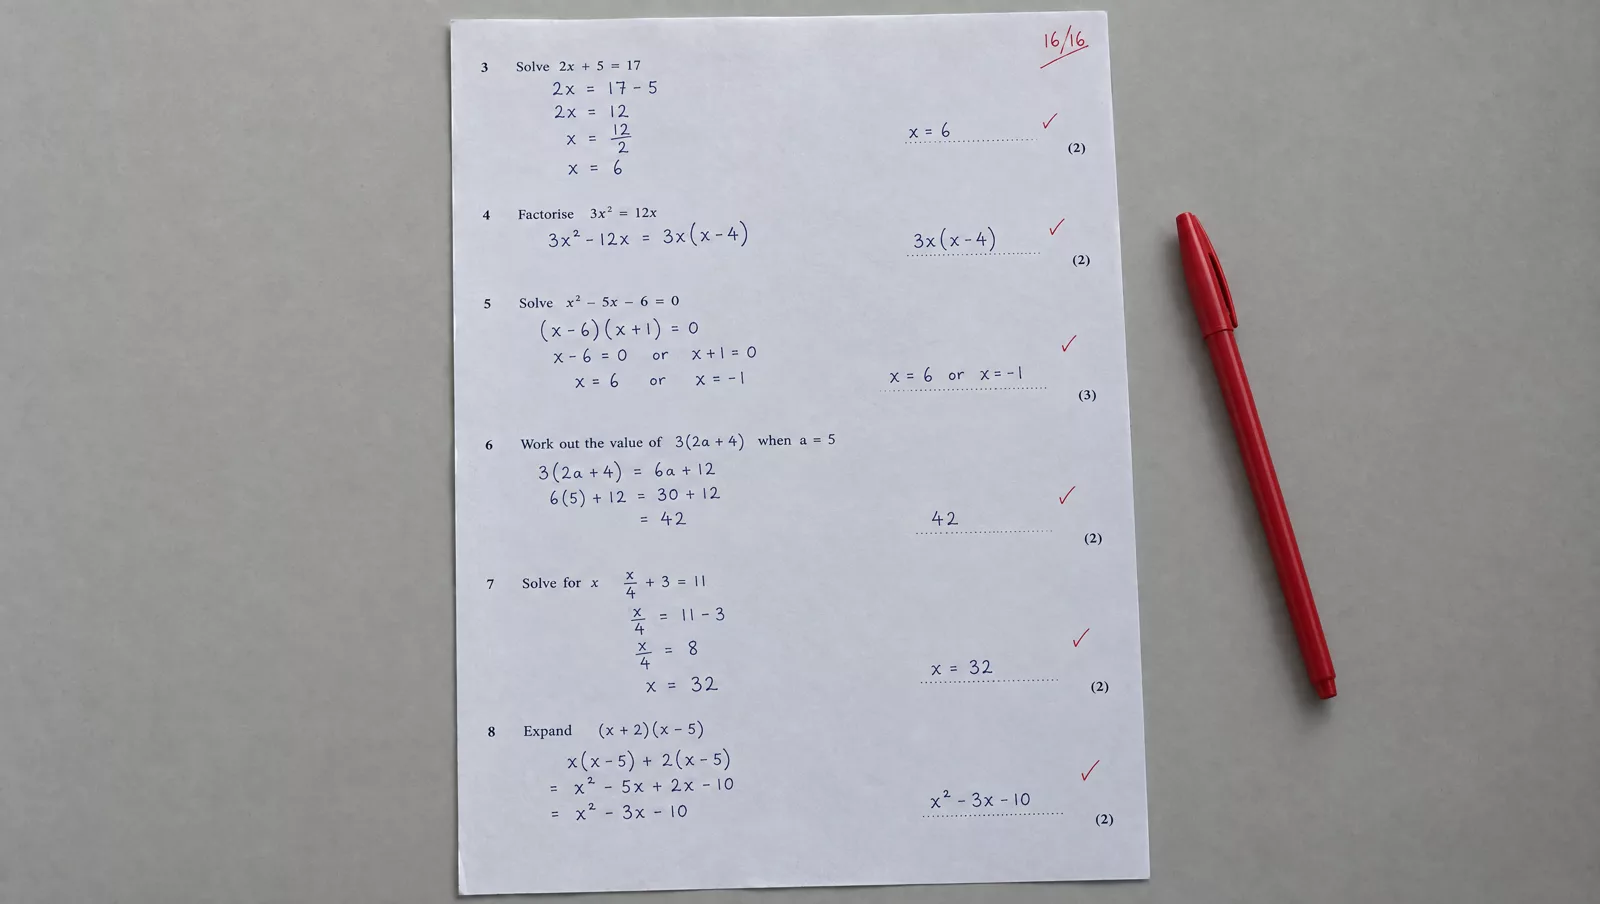 16/16
3 Solve 2x + 5 = 17
2x = 17 - 5
2x = 12
x = 12/2
x = 6
x = 6 ✓
(2)
4 Factorise 3x² = 12x
3x² - 12x = 3x(x - 4)
3x(x - 4) ✓
(2)
5 Solve x² - 5x - 6 = 0
(x - 6)(x + 1) = 0
x - 6 = 0 or x + 1 = 0
x = 6 or x = -1
x = 6 or x = -1 ✓
(3)
6 Work out the value of 3(2a + 4) when a = 5
3(2a + 4) = 6a + 12
6(5) + 12 = 30 + 12
= 42
42 ✓
(2)
7 Solve for x x/4 + 3 = 11
x/4 = 11 - 3
x/4 = 8
x = 32
x = 32 ✓
(2)
8 Expand (x + 2)(x - 5)
x(x - 5) + 2(x - 5)
= x² - 5x + 2x - 10
= x² - 3x - 10
x² - 3x - 10 ✓
(2)